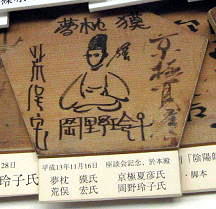 夢枕獏
京極夏彦
荒俣宏
岡野玲子
28日
玲子氏
平成13年11月16日 座談会記念、於本殿
夢枕 獏氏 京極夏彦氏
荒俣 宏氏 岡野玲子氏
『陰陽師
・脚本